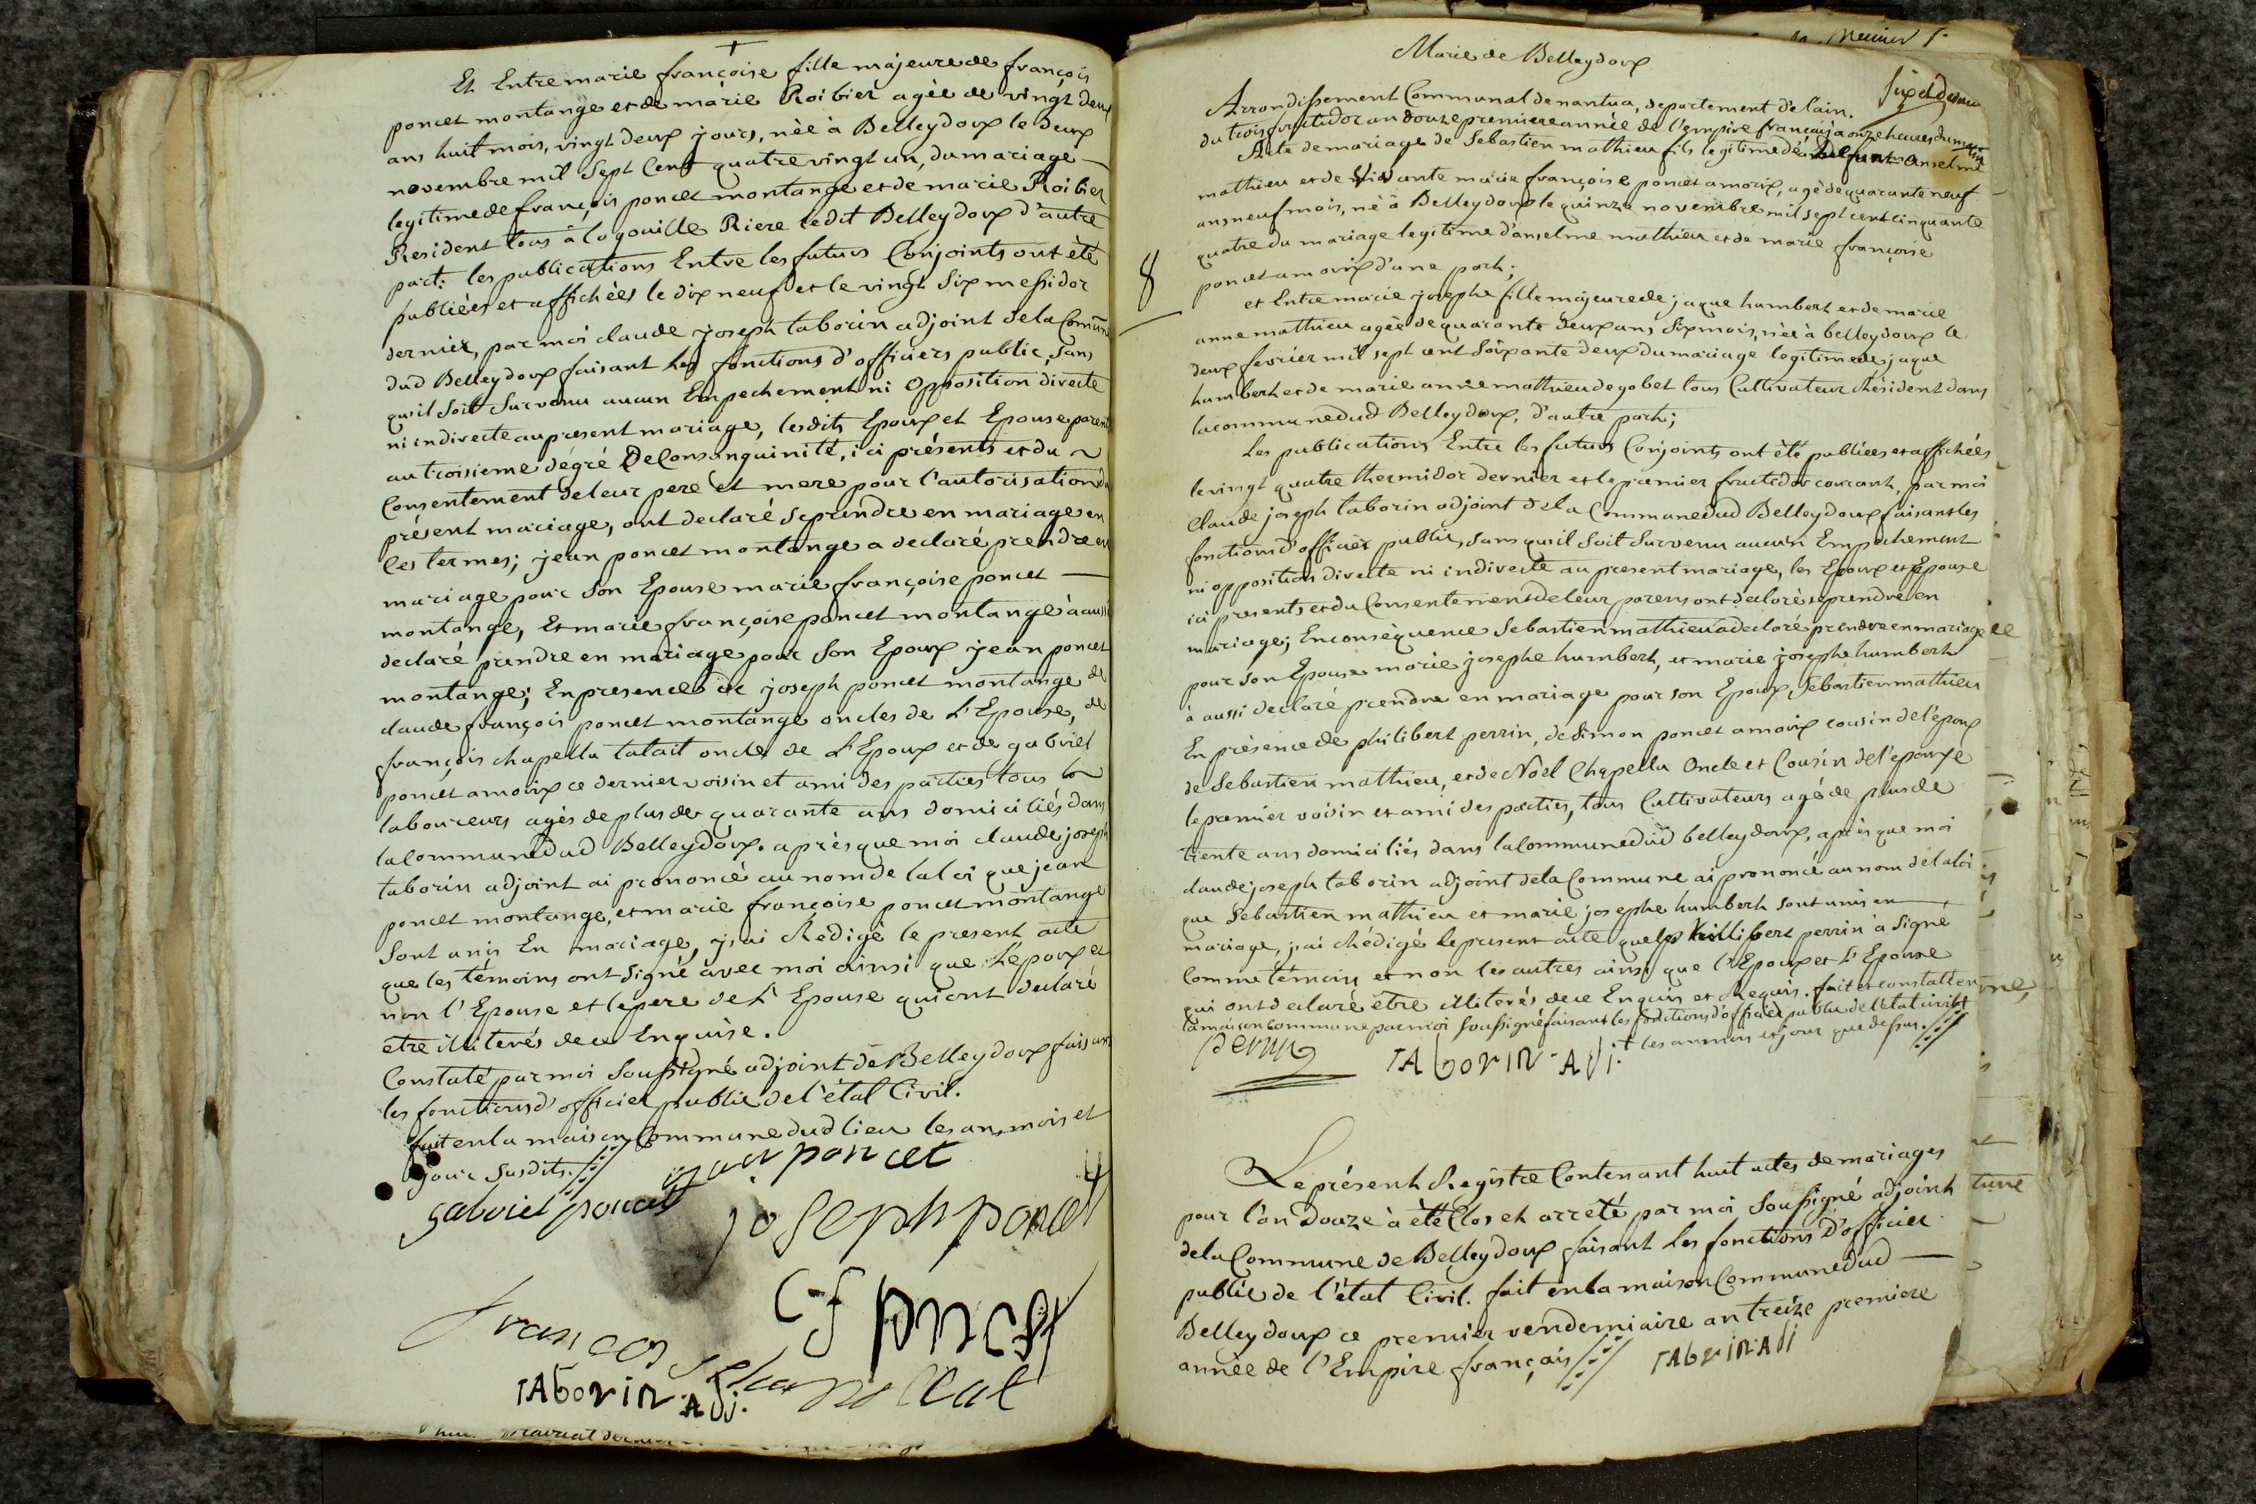 Et Entre marie françoise fille majeure de françois
poncet montange et de marie Roibier agée de vingt deux
ans huit mois, vingt deux jours, née à Belleydoux le deux
novembre mil sept Cent quatre vingt un, du mariage
legitime de françois poncet montange et de marie Roibier
Resident tous à la gouille Riere ledit Belleydoux d'autre
part: les publications Entre les futurs Conjoints ont été
publiées et affichées le dix neuf et le vingt six messidor
dernier, par moi claude joseph taborin adjoint de la Commune
dud Belleydoux faisant les fonctions d'officiers public, sans
qu'il soit survenu aucun Empechement ni Opposition directe
ni indirecte au present mariage, lesdits Epoux et Epouse parents
au troisieme dégré De Consanguinité, ici présents et du
Consentement de leur pere et mere pour l'autorisation du
présent mariage, ont declaré se prendre en mariage en
Ces termes; jean poncet montange a declaré prendre en
mariage pour son Epouse marie françoise poncet
montange, Et marie françoise poncet montange à aussi
declaré prendre en mariage pour son Epoux jean poncet
montange; En presence de joseph poncet montange de
claude françois poncet montange oncles de L'Epouse, de
françois chapella talait oncle de L'Epoux et de gabriel
poncet amoux ce dernier voisin et ami des parties tous
laboureurs agés de plus de quarante ans domiciliés dans
la Commune dud Belleydoux. après que moi claude joseph
taborin adjoint ai prononcé au nom de la loi que jean
poncet montange, et marie françoise poncet montange
sont unis En mariage, j'ai Rédigé le present acte
que les témoins ont signé avec moi ainsi que L'époux et
non l'Epouse et le pere de L'Epouse qui ont declaré
etre illiterés de ce Enquise.
Constaté par moi soussigné adjoint de Belleydoux faisant
les fonctions d'officier public de l'état Civil.
fait en la maison Commune dud lieu les an, mois et
jour susdits.
jean poncet
gabriel poncet
joseph poncet
C f poncet
francois chapellat
TABORIN. Adj.
Marie de Belleydoux
Arrondissement Communal de nantua, departement de l'ain.
du trois fructidor an douze premiere année de l'empire français à onze heures du matin
Acte de mariage de Sebastien mathieu fils legitime de Defunt anselme
mathieu et de vivante marie françoise poncet amoux, agé de quarante neuf
ans neuf mois, né à Belleydoux le quinze novembre mil sept cent cinquante
quatre du mariage legitime d'anselme mathieu et de marie françoise
poncet amoux d'une part;
8
et Entre marie josephe fille majeure de jaque humbert et de marie
anne mathieu agée de quarante deux ans six mois, née à belleydoux le
deux fevrier mil sept cent soixante deux du mariage legitime de jaque
humbert et de marie anne mathieu de gobet tous Cultivateur Résident dans
la commune dud Belleydoux, d'autre part;
Les publications Entre les futurs Conjoints ont été publiées et affichées
le vingt quatre thermidor dernier et le premier fructidor courant, par moi
Claude joseph taborin adjoint de la Commune dud Belleydoux faisant les
fonctions d'officier public, sans qu'il soit survenu aucun Empechement
ni opposition directe ni indirecte au present mariage, les Epoux et Epouse
ici presents et du Consentement de leur parens ont declaré se prendre en
mariage; En conséquence Sebastien mathieu a declaré prendre en mariage
pour son Epouse marie josephe humbert, et marie josephe humbert
à aussi declaré prendre en mariage pour son Epoux Sebastien mathieu
En présence de philibert perrin, de simon poncet amoux cousin de l'époux
de Sebastien mathieu, et de Noël Chapella Oncle et Cousin de l'epouse
le premier voisin et ami des parties, tous Cultivateurs agé de plus de
trente ans domiciliés dans la Commune dud belleydoux, après que moi
claude joseph taborin adjoint de la Commune ai prononcé au nom de la loi
que Sebastien mathieu et marie josephe humbert sont unis en
mariage, j'ai Rédigé le present acte que philibert perrin à signé
Comme témoin et non les autres ainsi que l'Epoux et L'Epouse
qui ont declaré être illiterés de ce Enquis et Requis. fait et constaté en
la maison commune par moi soussigné faisant les fonctions d'officier public de l'état civil
+ les an mois et jour que dessus.
perrin
TABORIN - Adj.
Le présent Registre Contenant huit actes de mariages
pour l'an Douze à été Clos et arreté par moi soussigné adjoint
de la Commune de Belleydoux faisant les fonctions D'officier
public de l'état Civil. fait en la maison Commune dud
Belleydoux ce premier vendemiaire an treize premiere
année de l'Empire français
TABORIN Adj